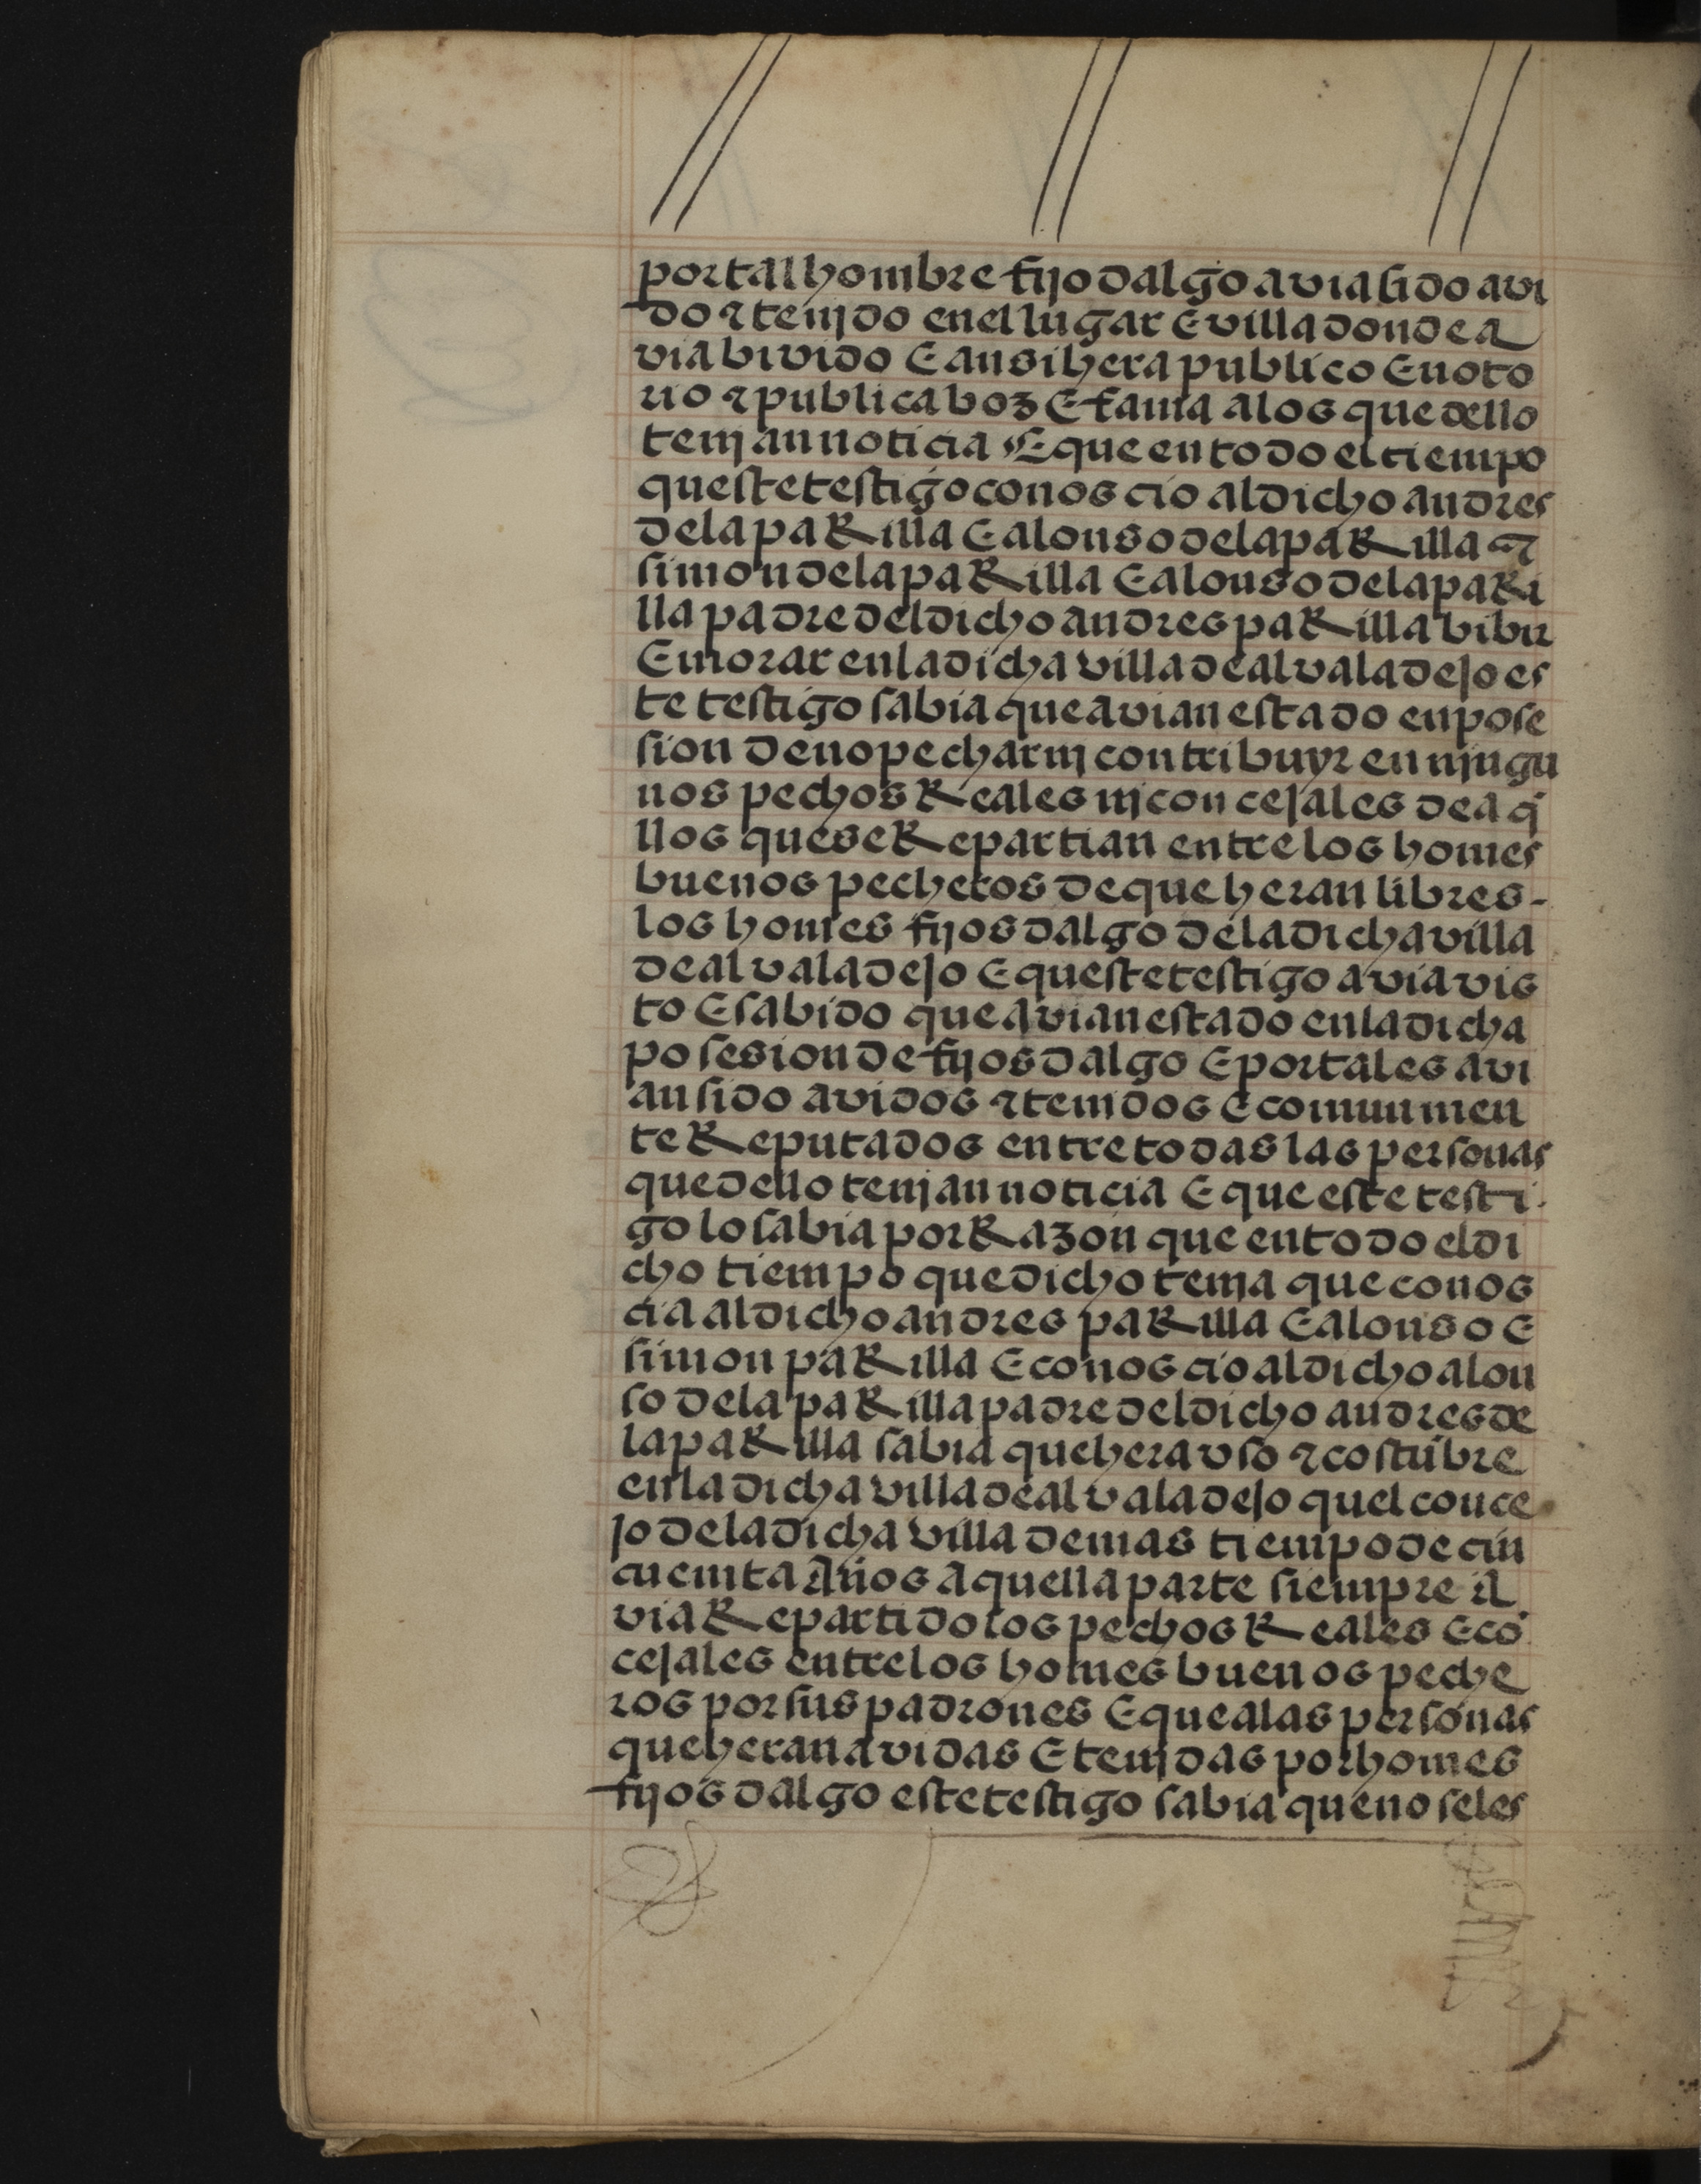 por tal hombre fijo dalgo avia sido avi
do ⁊ tenjdo en el lugar E villa donde a
via bivido E ansi hera publico E noto
rio ⁊ publica boz E fama a los que dello
tenjan noticia E que en todo el tiempo
queste testigo conoscio al dicho andres
de la paRilla E alonso de la paRilla ⁊
simon de la paRilla E alonso de la paRi
lla padre del dicho andres paRilla bibir
E morar en la dicha villa de alvaladejo es
te testigo sabia que avian estado en pose
sion de no pechar nj contribuyr en njngu
nos pechos Reales nj concejales de aq̄
llos que se Repartian entre los homes
buenos pecheros de que heran libres -
los homes fijos dalgo de la dicha villa
de alvaladejo E queste testigo avia vis
to E sabido que avian estado en la dicha
posesion de fijos dalgo E por tales avi
an sido avidos ⁊ tenjdos E comunmen
te Reputados entre todas las personas
que dello tenjan noticia E que este testi
go lo sabia por Razon que en todo el di
cho tiempo que dicho tenja que conos
cia al dicho andres paRilla E alonso E
simon paRilla E conoscio al dicho alon
so de la paRilla padre del dicho andres de
la paRilla sabia que hera vso ⁊ costūbre
en la dicha villa de alvaladejo quel conce
jo de la dicha villa de mas tiempo de cin
cuenta Años a quella parte siempre a
via Repartido los pechos Reales E cō
cejales entre los homes buenos peche
ros por sus padrones E que a las personas
que heran avidas E tenjdas por homes
fijos dalgo este testigo sabia que no se les